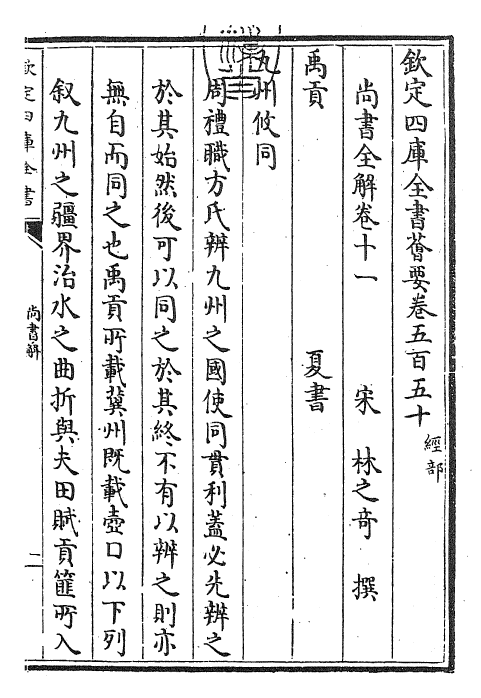 欽定四庫全書薈要卷五百五十 經部
尚書全解卷十一 宋 林之奇 撰
禹貢 夏書
九州攸同
周禮職方氏辨九州之國使同貫利蓋必先辨之
於其始然後可以同之於其終不有以辨之則亦
無自而同之也禹貢所載冀州既載壺口以下列
叙九州之疆界治水之曲折與夫田賦貢篚所入
欽定四庫全書
尚書解
二